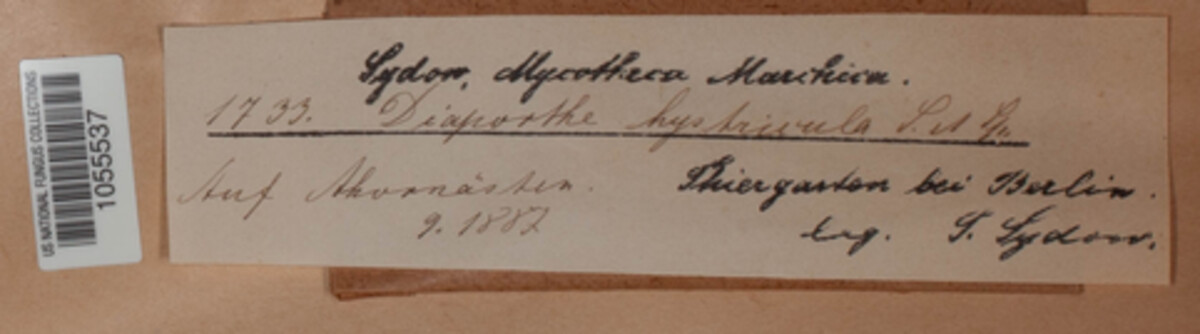 US NATIONAL FUNGUS COLLECTIONS
1055537
Sydow, Mycotheca Marchica.
1733. Diaporthe hystricula S. et
Auf Ahornästen.
9. 1887
Thiergarten bei Berlin.
leg. P. Sydow.